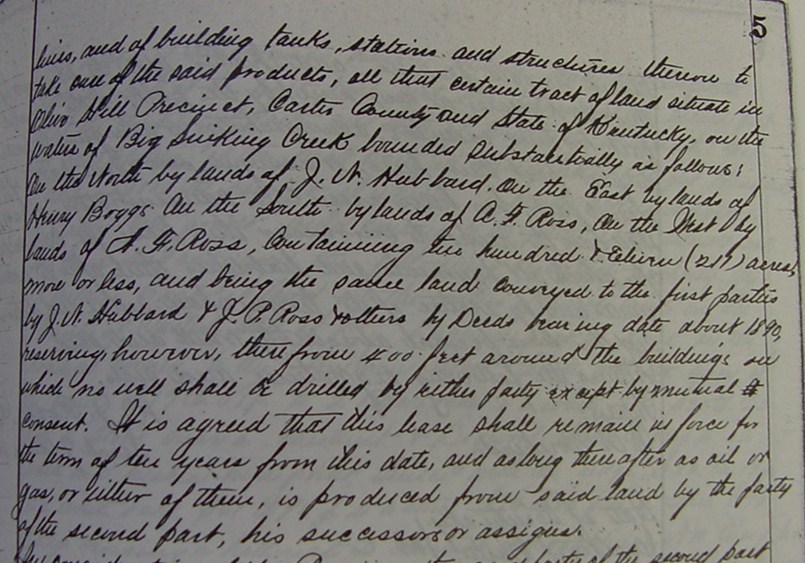 5
lines, and of building tanks, stations and structures thereon to
take care of the said products, all that certain tract of land situate in
Olive Hill Precinct, Carter County and State of Kentucky, on the
waters of Big Sinking Creek bounded substantially as follows;
On the North by lands of J. N. Hubbard. On the East by lands of
Henry Boggs. On the South by lands of A. F. Ross, On the West by
lands of A. F. Ross, Containing two hundred & Eleven (211) acres,
more or less, and being the same land conveyed to the first parties
by J. N. Hubbard & J. P. Ross & others by Deeds bearing date about 1890,
reserving, however, therefrom 400 feet around the buildings on
which no well shall be drilled by either party except by mutual
consent. It is agreed that this lease shall remain in force for
the term of ten years from this date, and as long thereafter as oil or
gas, or either of them, is produced from said land by the party
of the second part, his successors or assigns.
party of the second part